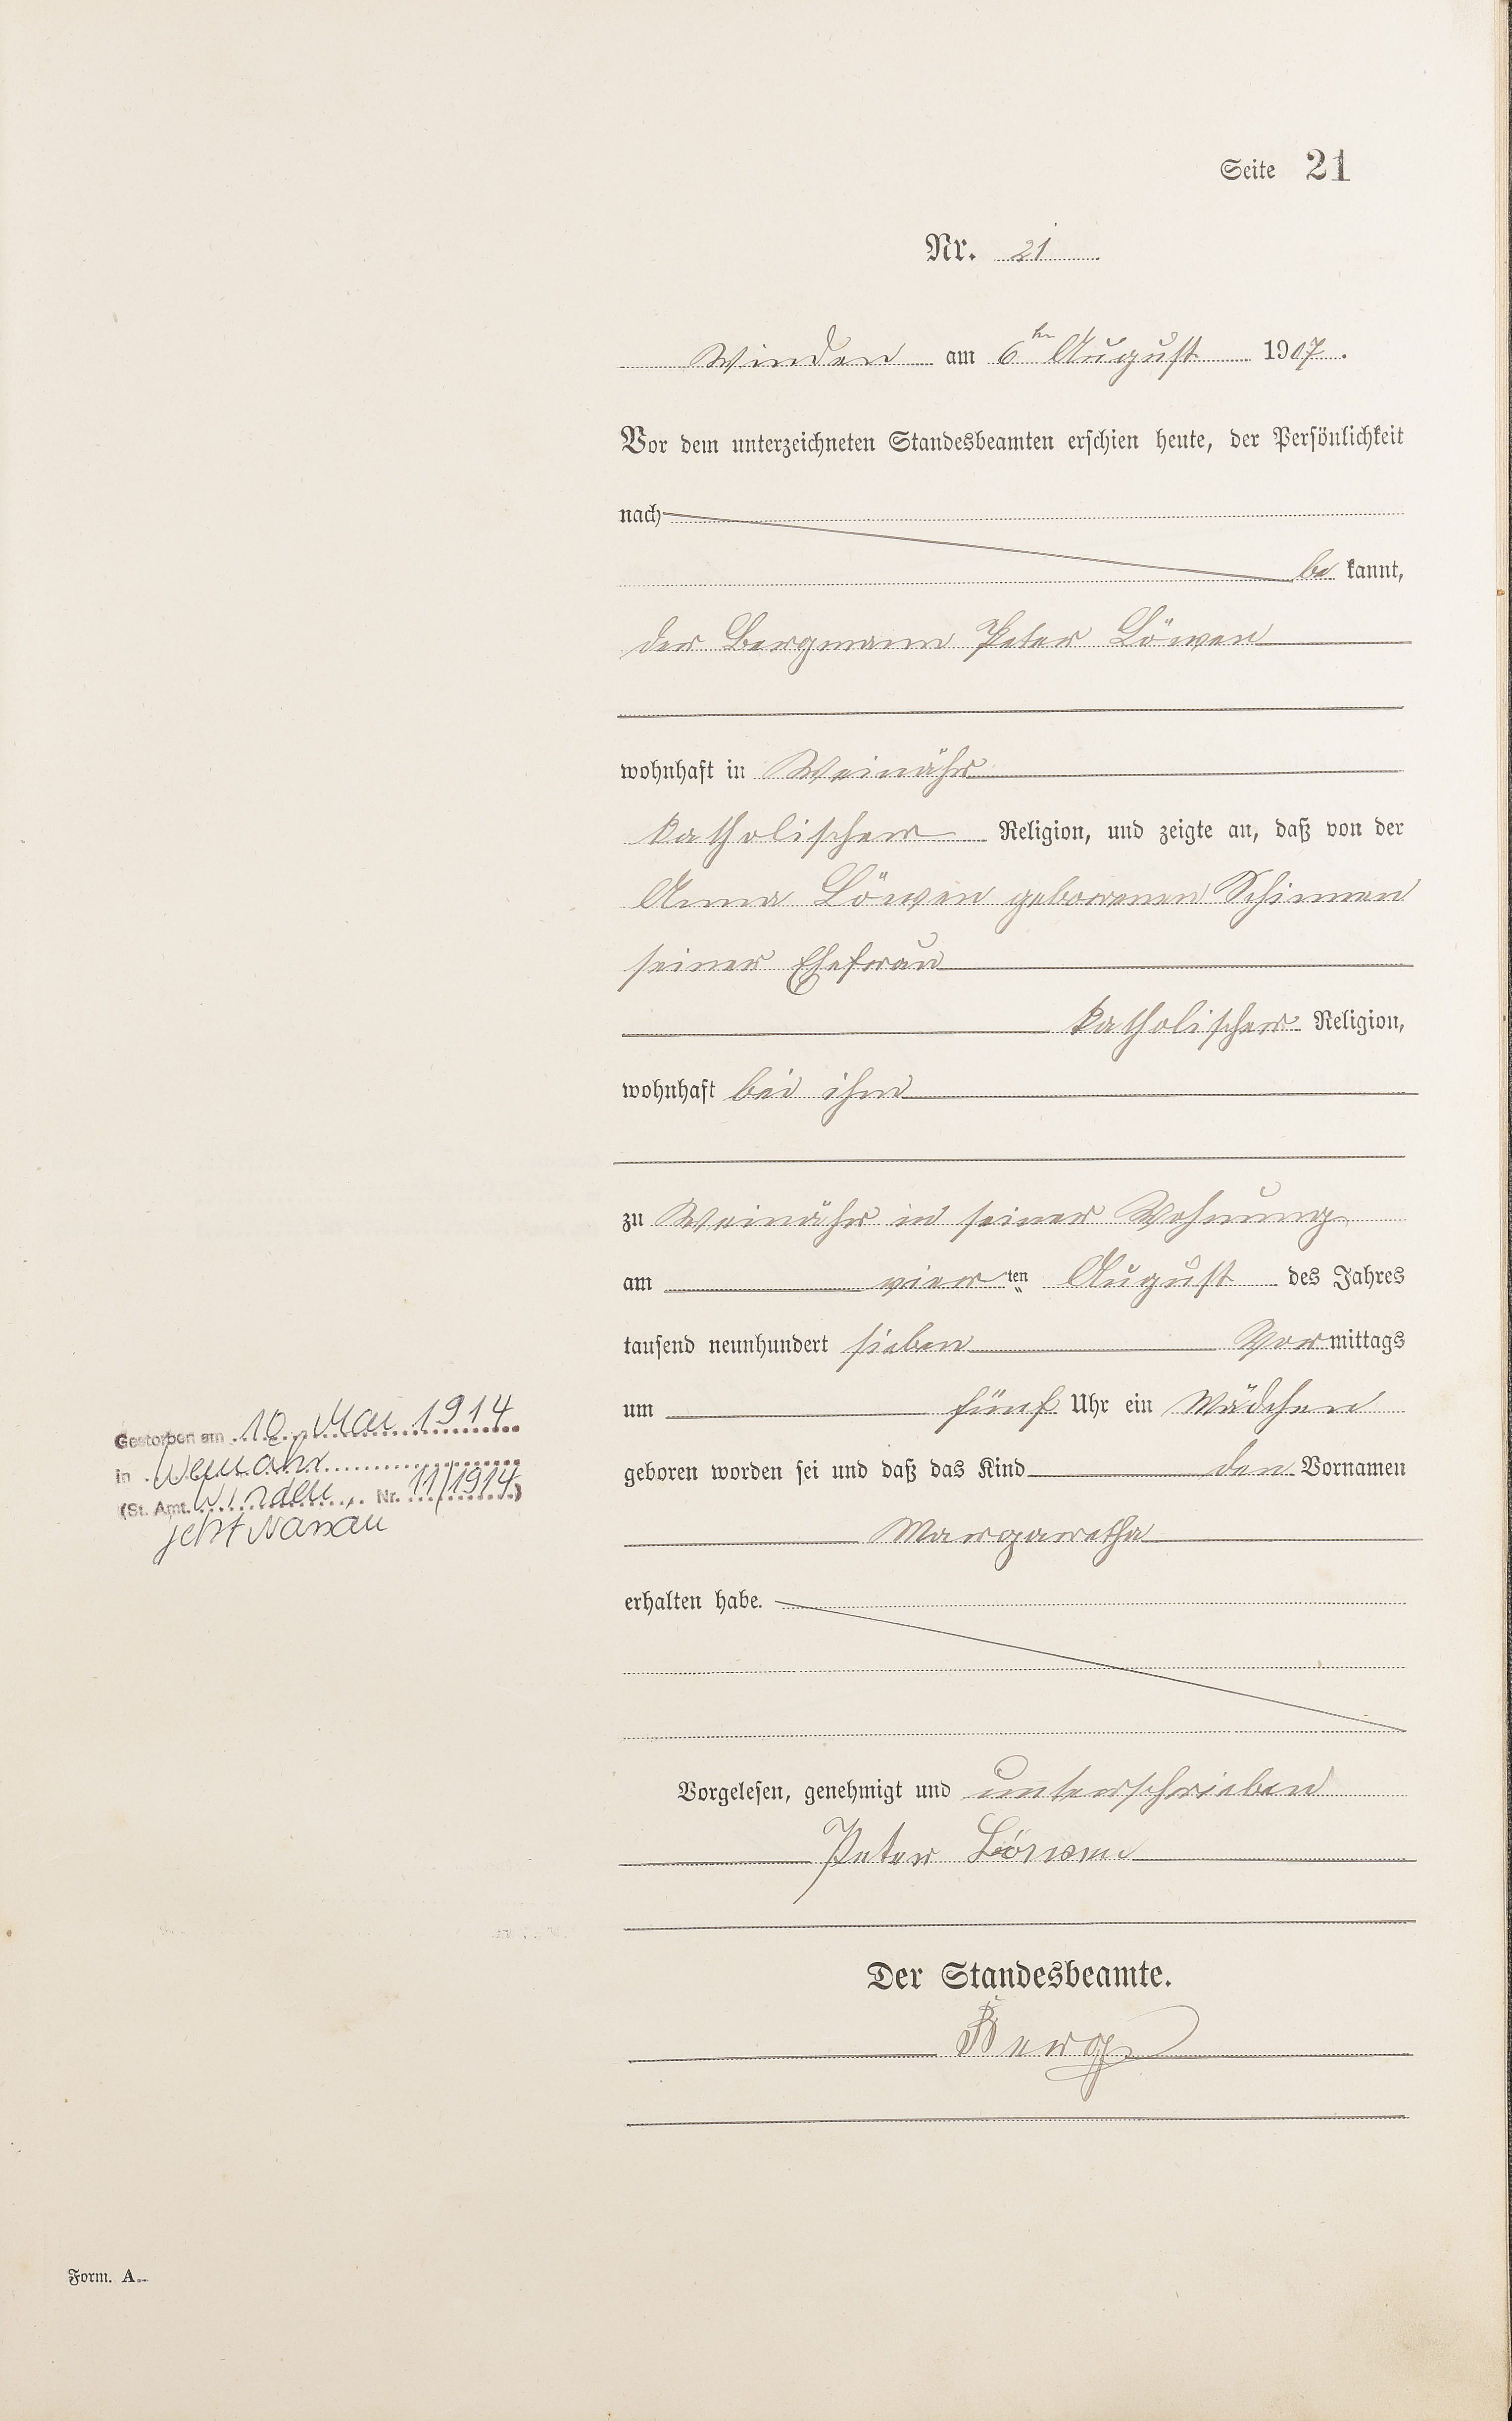 Seite 21
Nr. 21
Winden am 6ten August 1907.
Vor dem unterzeichneten Standesbeamten erschien heute, der Persönlichkeit
nach
be kannt,
der Bergmann Peter Löwen
wohnhaft in Weinähr
katholischer Religion, und zeigte an, daß von der
Anna Löwen geborenen Schimmen
seiner Ehefrau
katholischer Religion,
wohnhaft bei ihm
zu Weinähr in seiner Wohnung
am vier ten August des Jahres
tausend neunhundert sieben Vormittags
um fünf Uhr ein Mädchen
geboren worden sei und daß das Kind den Vornamen
Margaretha
erhalten habe.
Vorgelesen, genehmigt und unterschrieben
Peter Löwen
Der Standesbeamte.
Berg
Gestorben am 10. Mai 1914
in Weinähr
(St. Amt. Winden, Nr. 11/1914)
jetzt Nassau
Form. A.